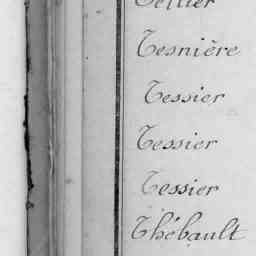 Tesnière
Tessier
Tessier
Tessier
Thébault